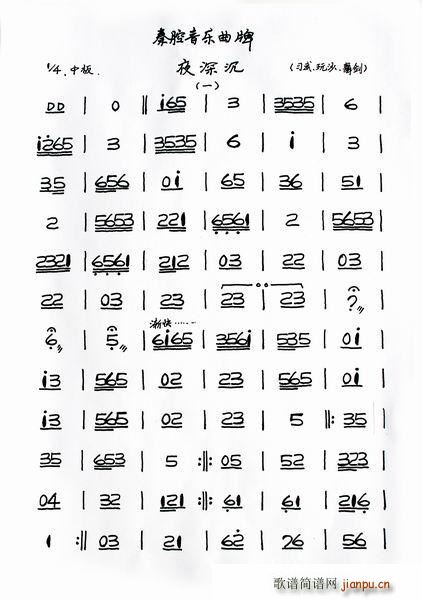 秦腔音乐曲牌
1/4. 中板. 夜深沉 (习武、玩沙、舞剑)
(一)
DD | 0 ‖ i65 | 3 | 3535 | 6
i265 | 3 | 3535 | 6 | i | 3
35 | 656 | 0i | 65 | 36 | 51
2 | 5653 | 221 | 6561 | 2 | 5653
2321 | 6561 | 212 | 03 | 22 | 03
22 | 03 | 23 | 23 | 23 | ?
渐快……
6 | 5 | 6i65 | 356i | 535 | 0i
i3 | 565 | 02 | 23 | 565 | 0i
i3 | 565 | 02 | 23 | 5 ‖: 35
35 | 653 | 5 :‖: 05 | 52 | 323
04 | 32 | 121 :‖: 61 | 61 | 216
1 :‖ 03 | 21 | 62 | 26 | 56
歌谱简谱网
jianpu.cn